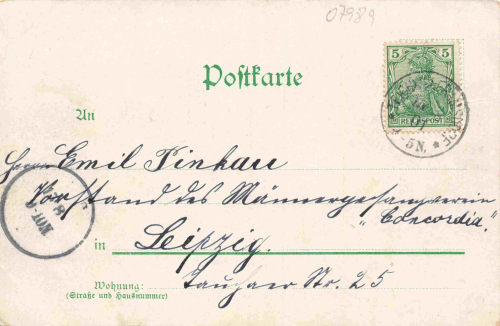 07989
5 5
REICHSPOST
Postkarte
An
Herrn Emil Pinkau
Vorstand des Männergesangverein
"Concordia."
in Leipzig.
Wohnung: Tauchaer Str. 25
(Straße und Hausnummer)
5N.